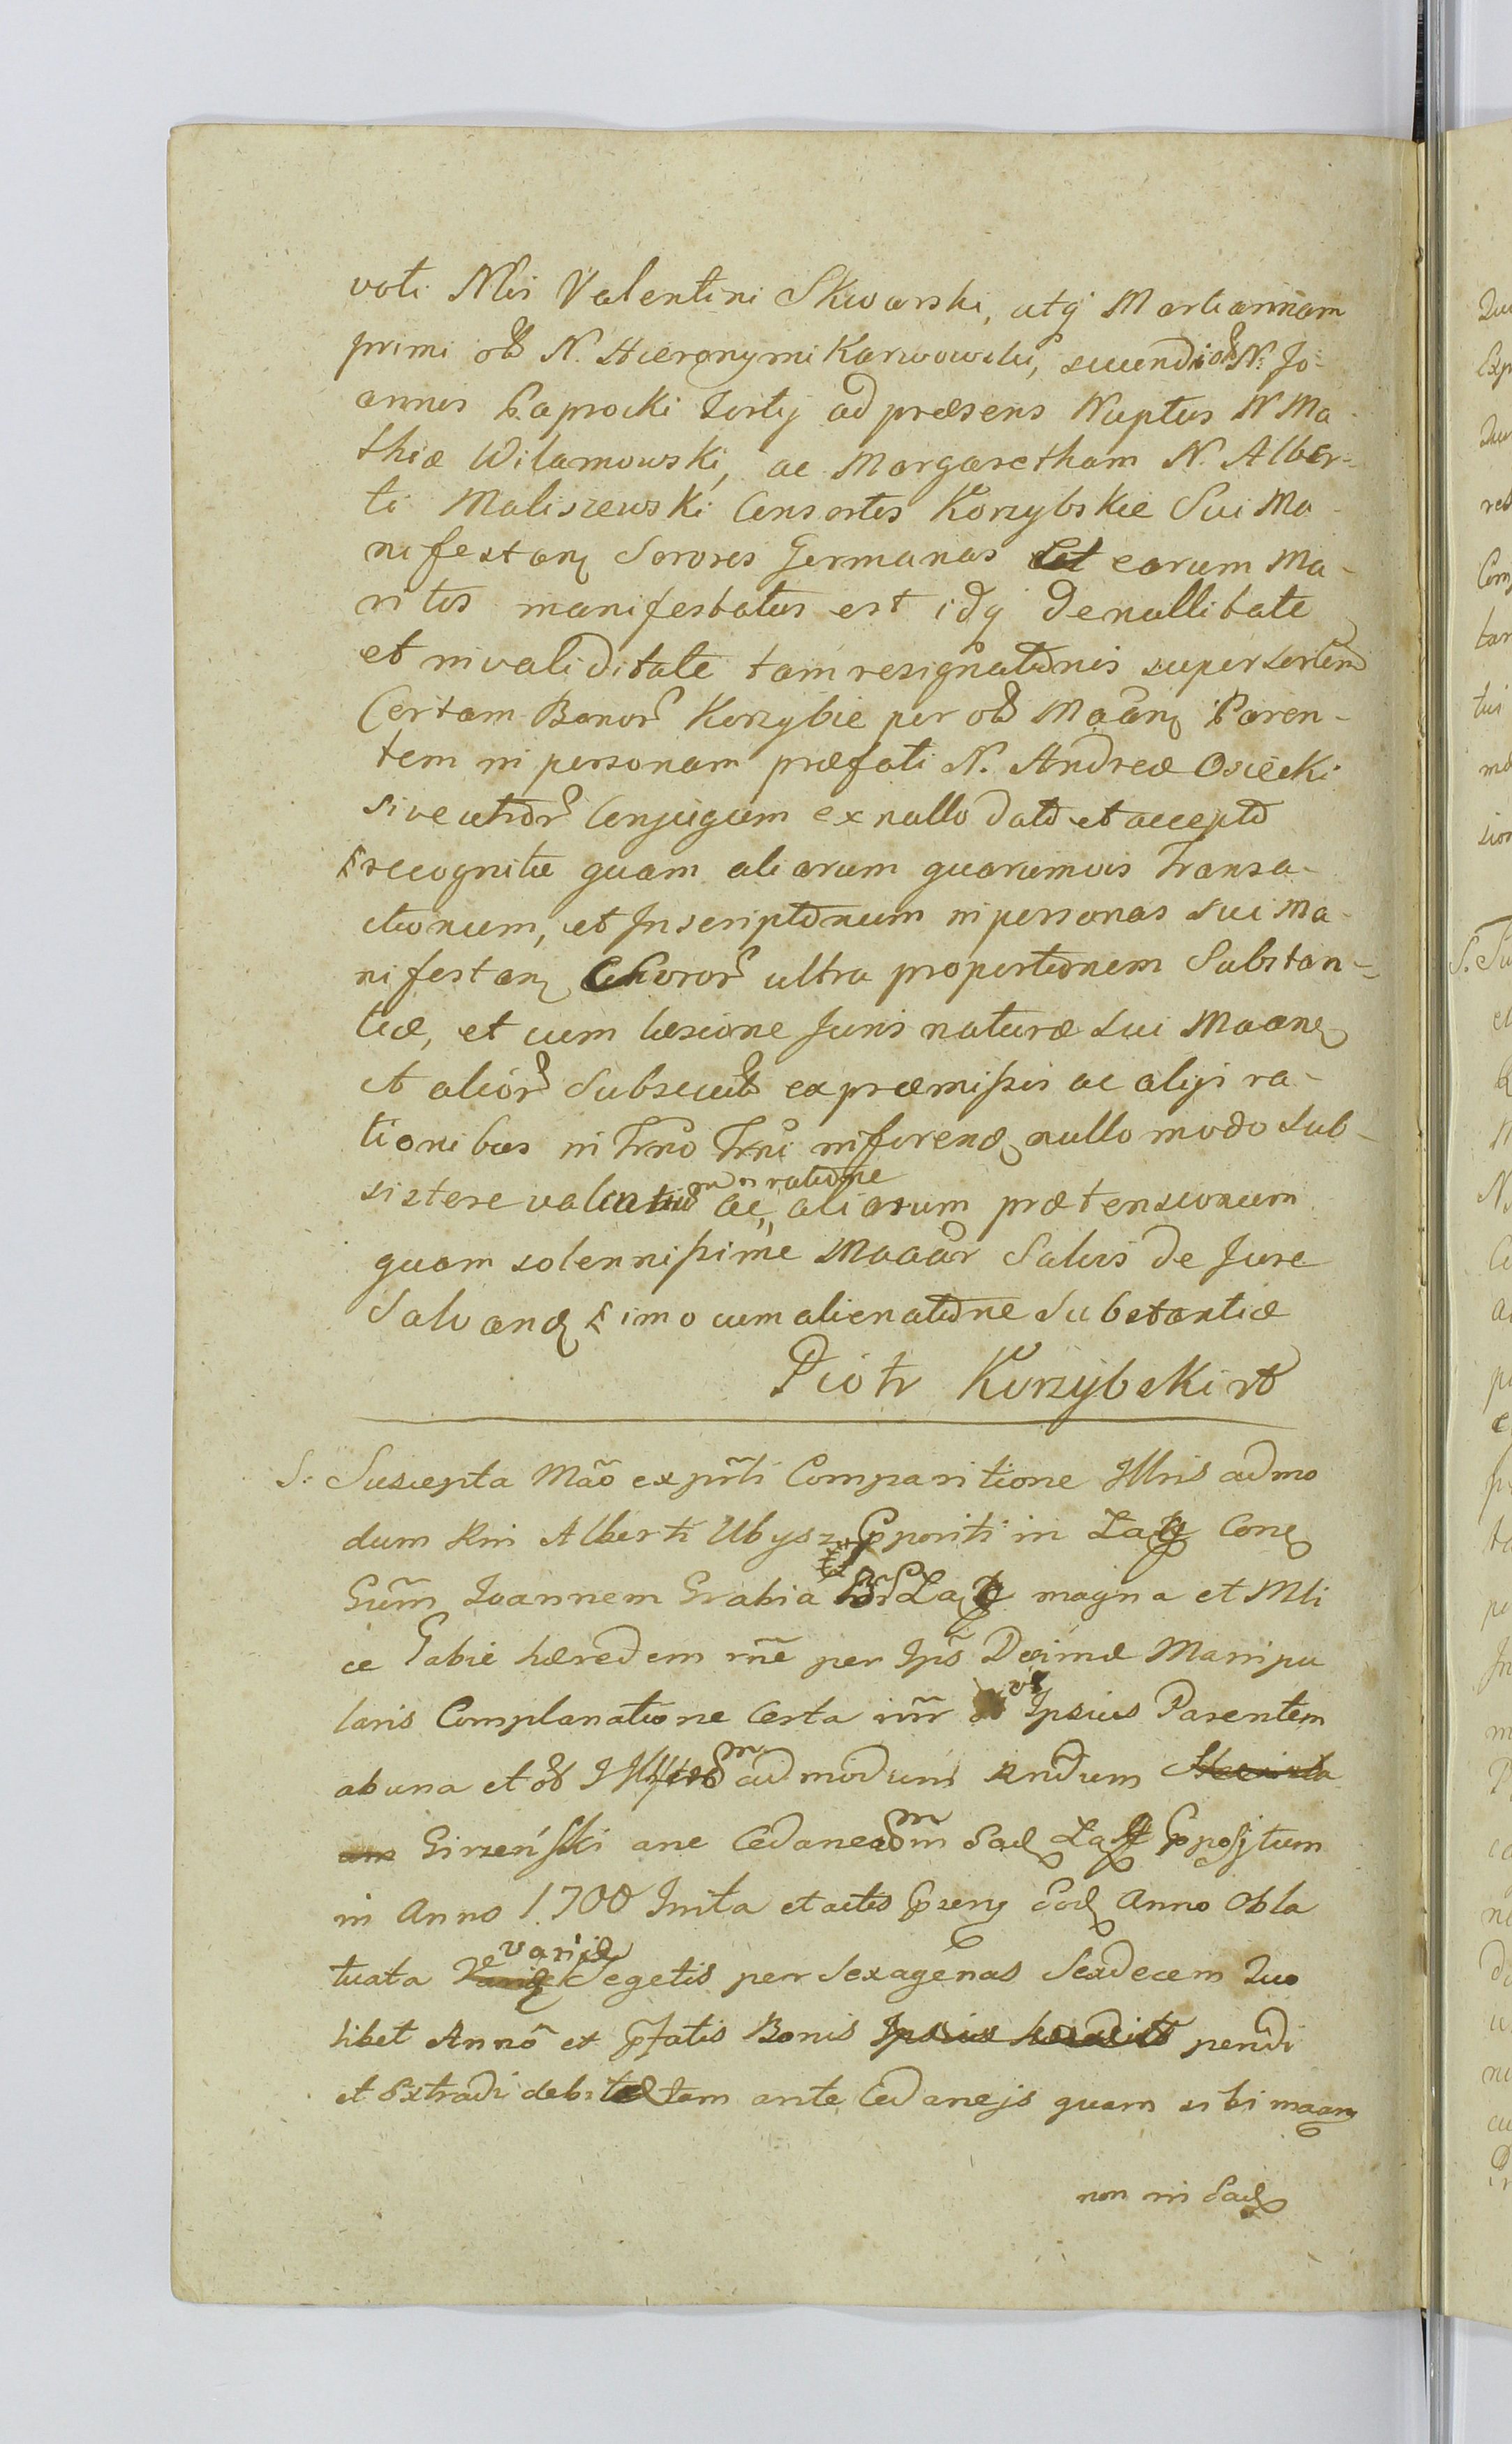 voti Nlis Valentini Skwarski, atq Mariannam
primi ob N. Hieronymi Karwowski, secundi ob N. Jo-
annis Paprocki tertij ad præsens Nuptus N Ma-
thiæ Wilamowski, ac Margaretham N. Alber-
ti Maliszewski Consortes Korzybskie Sui Ma-
nifestan Sorores Germanas et earum Ma-
ritos manifestatus est idq de nullitate
et invaliditate tam resignationis super sortem
Certam Bonor Korzybie per ob Maan Paren-
tem in personam præfati N. Andreæ Osiecki
sive utror Conjugum ex nullo dato et accepto
recognitæ quam aliarum quarumvis Transa-
ctionum, et Inscriptionum in personas sui Ma-
nifestan Sororr ultra proportionem Substan-
tiæ, et cum læsione Juris naturæ sui Maan
et alior Subsecut ex præmissis ac alijs ra-
tionibus in Trno Trni inferend nullo modo sub-
sistere valen
ratione
ac, aliarum prætensionum
quam solennissime Maaar Salvis de Jure
Salvand imo cum alienatione Substantiæ
Piotr Korzybski
S. Suscepta Mão ex prti Comparitione Illris admo
dum Rni Alberti Ubysz ppositi in Conq
Gum Joannem Grabia magna et Mli
ce Gabie hæredem rñe per Ips Decimæ Manipu
laris Complanatione Certa Ipsius Parentem
ab una et ob admodum Rndum
Girzeński ane Cedaneum Sad ppositum
in Anno 1700 Inita et actis Eod Anno Obla
variæ
tuata Segetis per Sexagenas Sexdecem Quo
libet Anno et pfatis Bonis pendi
et Extradi debitæ tam ante Cedanejs quam sibi maan
non in Sad